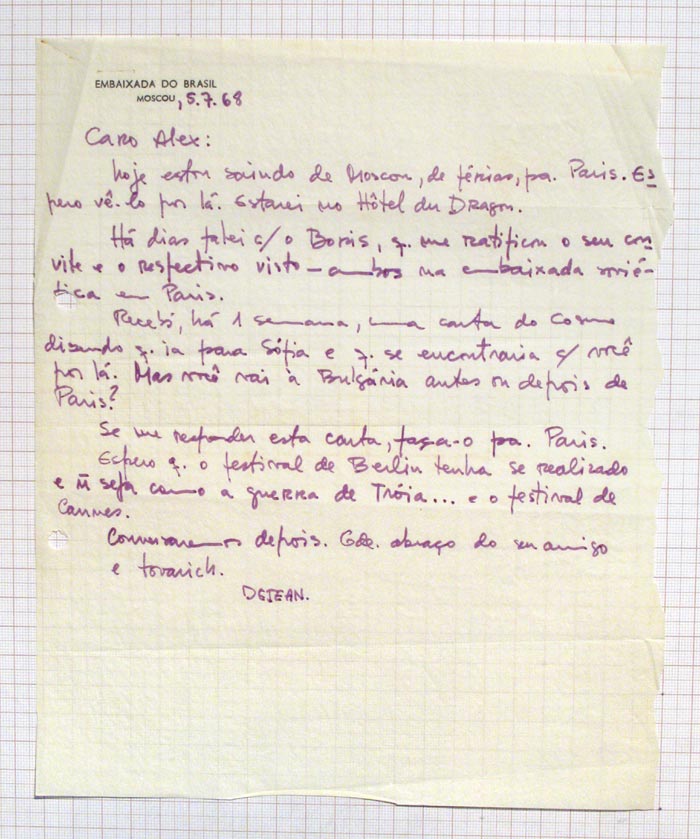 EMBAIXADA DO BRASIL
MOSCOU, 5.7.68
Caro Alex:
hoje estou saindo de Moscou, de férias, pa. Paris. Es
pero vê-lo por lá. Estarei no Hôtel du Dragon.
Há dias falei c/ o Boris, q. me ratificou o seu con
vite e o respectivo visto – ambos na embaixada sovié-
tica em Paris.
Recebi, há 1 semana, uma carta do Cosme
dizendo q. ia para Sófia e q. se encontraria c/ você
por lá. Mas você vai à Bulgária antes ou depois de
Paris?
Se me responder esta carta, faça-o pa. Paris.
Espero q. o festival de Berlin tenha se realizado
e ñ seja como a guerra de Tróia... e o festival de
Cannes.
Conversaremos depois. Gde. abraço do seu amigo
e tovarich.
DEJEAN.